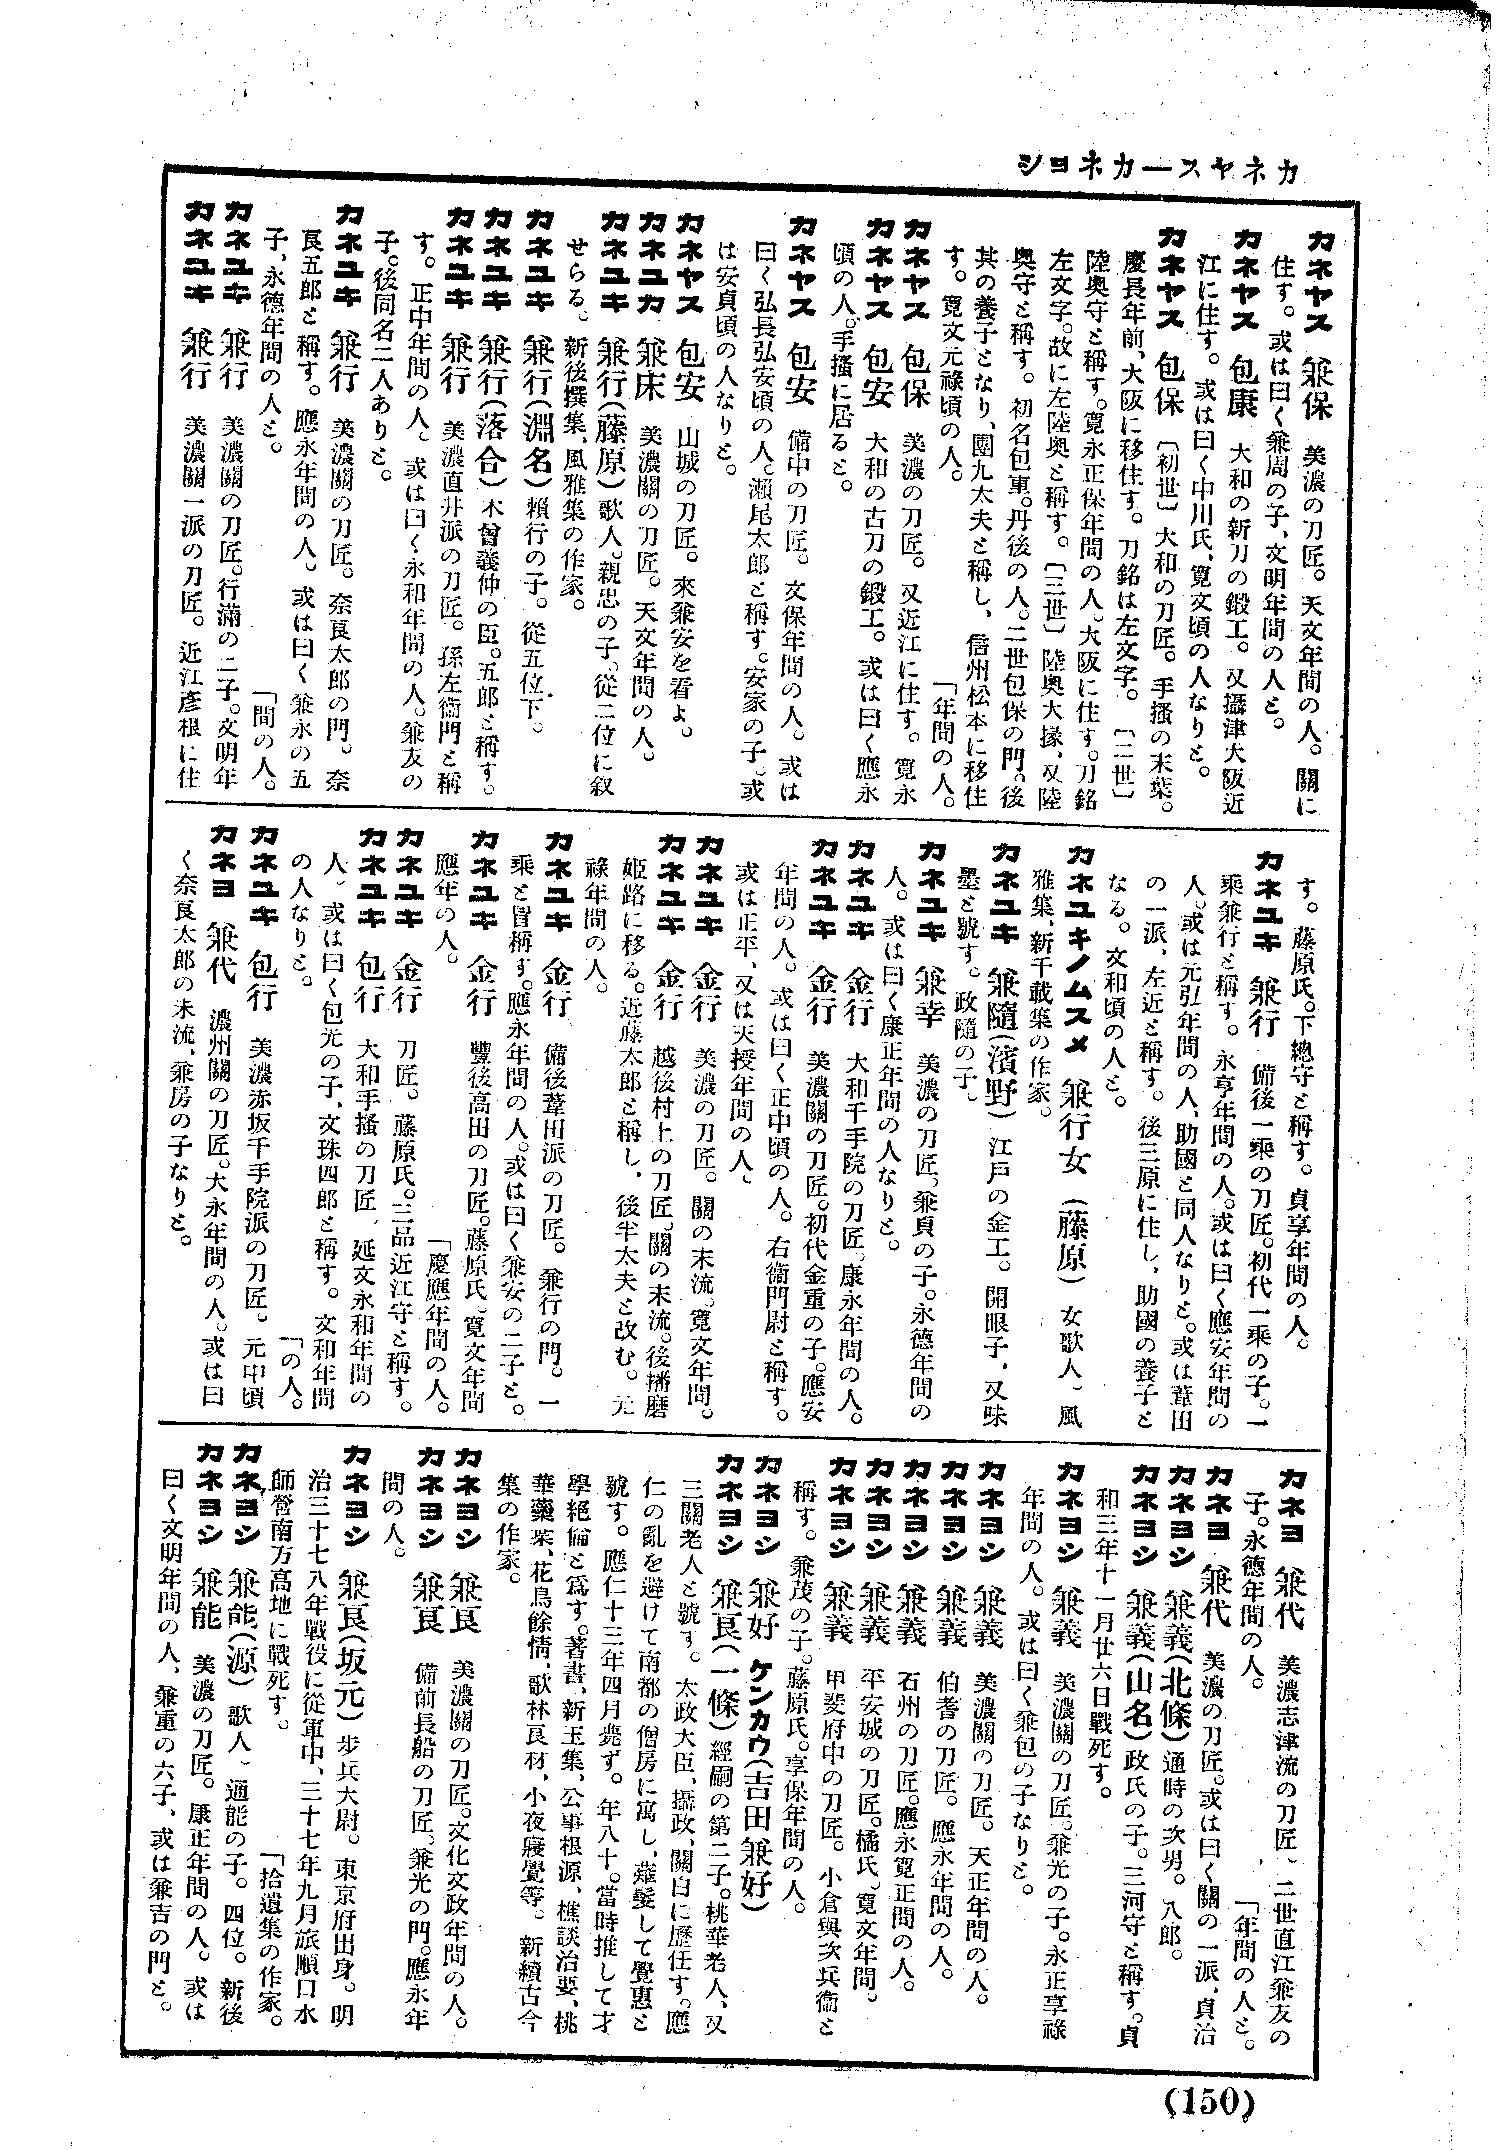 カネヤス―カネヨシ
カネヤス 兼保 美濃の刀匠。天文年間の人。關に
住す。或は曰く兼周の子、文明年間の人と。
カネヤス 包康 大和の新刀の鍛工。又攝津大阪近
江に住す。或は曰く中川氏、寛文頃の人なりと。
カネヤス 包保 〔初世〕大和の刀匠。手搔の末葉。
慶長年前、大阪に移住す。刀銘は左文字。〔二世〕
陸奥守と稱す。寛永正保年間の人。大阪に住す。刀銘
左文字。故に左陸奥と稱す。〔三世〕陸奥大掾、又陸
奥守と稱す。初名包重。丹後の人。二世包保の門。後
其の養子となり、團九太夫と稱し、信州松本に移住
す。寛文元祿頃の人。 「年間の人。
カネヤス 包保 美濃の刀匠。又近江に住す。寛永
カネヤス 包安 大和の古刀の鍛工。或は曰く應永
頃の人。手搔に居ると。
カネヤス 包安 備中の刀匠。文保年間の人。或は
曰く弘長弘安頃の人。瀬尾太郎と稱す。安家の子。或
は安貞頃の人なりと。
カネヤス 包安 山城の刀匠。來兼安を看よ。
カネユカ 兼床 美濃關の刀匠。天文年間の人。
カネユキ 兼行(藤原)歌人。親忠の子、從二位に叙
せらる。新後撰集、風雅集の作家。
カネユキ 兼行(淵名)賴行の子。從五位下。
カネユキ 兼行(落合)木曾義仲の臣。五郎と稱す。
カネユキ 兼行 美濃直井派の刀匠。孫左衞門と稱
す。正中年間の人。或は曰く永和年間の人。兼友の
子。後同名二人ありと。
カネユキ 兼行 美濃關の刀匠。奈良太郎の門。奈
良五郎と稱す。應永年間の人。或は曰く兼永の五
子、永德年間の人と。 「間の人。
カネユキ 兼行 美濃關の刀匠。行滿の二子。文明年
カネユキ 兼行 美濃關一派の刀匠。近江彥根に住
す。藤原氏。下總守と稱す。貞享年間の人。
カネユキ 兼行 備後一乘の刀匠。初代一乘の子。一
乘兼行と稱す。永享年間の人。或は曰く應安年間の
人。或は元弘年間の人、助國と同人なりと。或は葦田
の一派、左近と稱す。後三原に住し、助國の養子と
なる。文和頃の人と。
カネユキノムスメ 兼行女(藤原) 女歌人、風
雅集、新千載集の作家。
カネユキ 兼隨(濱野)江戸の金工。開眼子、又味
墨と號す。政隨の子。
カネユキ 兼幸 美濃の刀匠、兼貞の子。永德年間の
人。或は曰く康正年間の人なりと。
カネユキ 金行 大和千手院の刀匠。康永年間の人。
カネユキ 金行 美濃關の刀匠。初代金重の子。應安
年間の人。或は曰く正中頃の人。右衞門尉と稱す。
或は正平、又は天授年間の人、
カネユキ 金行 美濃の刀匠。關の末流。寛文年間。
カネユキ 金行 越後村上の刀匠。關の末流。後播磨
姫路に移る。近藤太郎と稱し、後半太夫と改む。元
祿年間の人。
カネユキ 金行 備後葦田派の刀匠。兼行の門。一
乘と冒稱す。應永年間の人。或は曰く兼安の二子と。
カネユキ 金行 豐後高田の刀匠。藤原氏。寛文年間
應年の人。 「慶應年間の人。
カネユキ 金行 刀匠。藤原氏。三品近江守と稱す。
カネユキ 包行 大和手搔の刀匠、延文永和年間の
人、或は曰く包光の子、文珠四郎と稱す。文和年間
の人なりと。 「の人。
カネユキ 包行 美濃赤坂千手院派の刀匠。元中頃
カネヨ 兼代 濃州關の刀匠。大永年間の人。或は曰
く奈良太郎の末流、兼房の子なりと。
カネヨ 兼代 美濃志津流の刀匠、二世直江兼友の
子。永德年間の人。 「年間の人と。
カネヨ 兼代 美濃の刀匠。或は曰く關の一派、貞治
カネヨシ 兼義(北條)通時の次男。八郎。
カネヨシ 兼義(山名)政氏の子。三河守と稱す。貞
和三年十一月廿六日戰死す。
カネヨシ 兼義 美濃關の刀匠。兼光の子。永正享祿
年間の人。或は曰く兼包の子なりと。
カネヨシ 兼義 美濃關の刀匠。天正年間の人。
カネヨシ 兼義 伯耆の刀匠。應永年間の人。
カネヨシ 兼義 石州の刀匠。應永寛正間の人。
カネヨシ 兼義 平安城の刀匠。橘氏。寛文年間。
カネヨシ 兼義 甲斐府中の刀匠。小倉與次兵衞と
稱す。兼茂の子。藤原氏。享保年間の人。
カネヨシ 兼好 ケンカウ(吉田兼好)
カネヨシ 兼良(一條)經嗣の第二子。桃華老人、又
三關老人と號す。太政大臣、攝政、關白に歷任す。應
仁の亂を避けて南都の僧房に寓し、薙髮して覺惠と
號す。應仁十三年四月薨ず。年八十。當時推して才
學絕倫と爲す。著書、新玉集、公事根源、樵談治要、桃
華藥葉、花鳥餘情、歌林良材、小夜寢覺等。新續古今
集の作家。
カネヨシ 兼良 美濃關の刀匠。文化文政年間の人。
カネヨシ 兼良 備前長船の刀匠。兼光の門。應永年
間の人。
カネヨシ 兼良(坂元)步兵大尉。東京府出身。明
治三十七八年戰役に從軍中、三十七年九月旅順口水
師營南方高地に戰死す。 「拾遺集の作家。
カネヨシ 兼能(源)歌人、通能の子。四位。新後
カネヨシ 兼能 美濃の刀匠。康正年間の人。或は
曰く文明年間の人、兼重の六子、或は兼吉の門と。
(150)